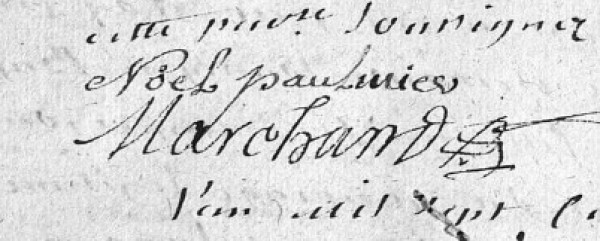 cette paroisse soussignez
Noel paulmier
Marchand
L'an mil sept